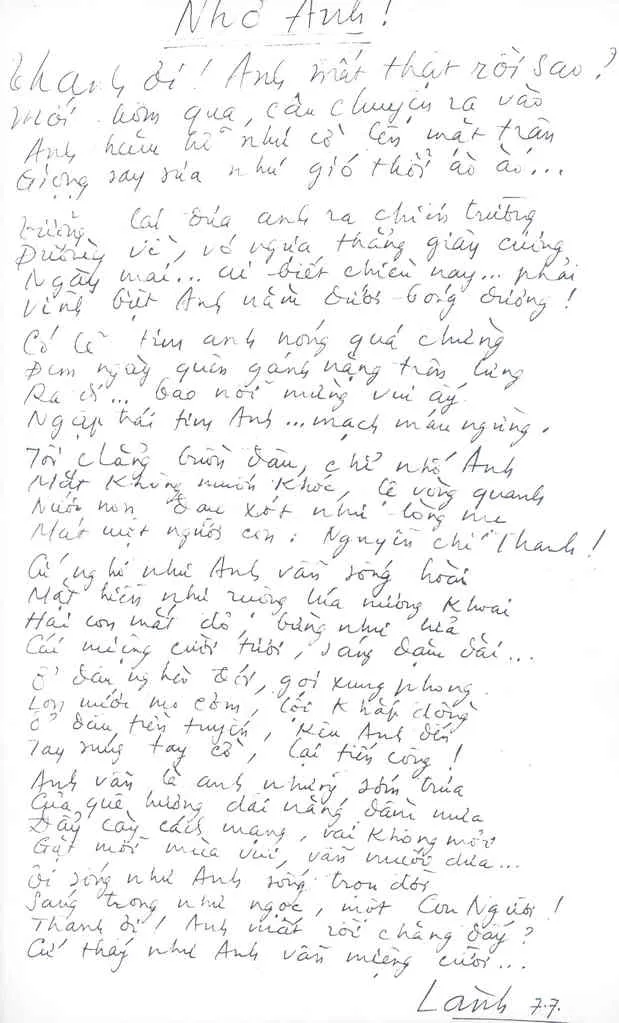 Nhớ Anh!
Thanh ơi! Anh mất thật rồi sao?
Mới hôm qua, câu chuyện ra vào
Anh hăm hở như cờ lên mặt trận
Giọng say sưa như gió thổi ào ào...
Tưởng lại đưa anh ra chiến trường
Đường về, vó ngựa thẳng giây cương
Ngày mai... ai biết chiều nay... phải
Vĩnh biệt Anh nằm dưới bóng dương!
Có lẽ tim anh nóng quá chừng
Đêm ngày quên gánh nặng trên lưng
Ra đi... bao nỗi mừng vui ấy
Ngập trái tim Anh... mạch máu ngừng.
Tôi chẳng buồn đâu, chỉ nhớ Anh
Mắt không muốn khóc, lệ vòng quanh
Nước non đau xót như lòng mẹ
Mất một người con: Nguyễn Chí Thanh!
Cứ nghĩ như Anh vẫn sống hoài
Mặt hiền như ruộng lúa nương khoai
Hai con mắt đỏ, bừng như lửa
Cái miệng cười tươi, sang đậm dài...
Ở đâu nghèo đói, gọi xung phong
Lon nước mo cơm, lội khắp đồng
Ở đâu tiền tuyến, kêu Anh đến
Tay súng tay cờ, lại tiến công!
Anh vẫn là anh những sớm trưa
Của quê hương dãi nắng dầm mưa
Đẩy cày cách mạng, vai không mỏi
Gặt mỗi mùa vui, vẫn muối dưa...
Ôi sống như Anh sống trọn đời
Sáng trong như ngọc, một Con Người!
Thanh ơi! Anh mất rồi chăng đấy?
Cứ thấy như Anh vẫn miệng cười...
Lành 7.7.